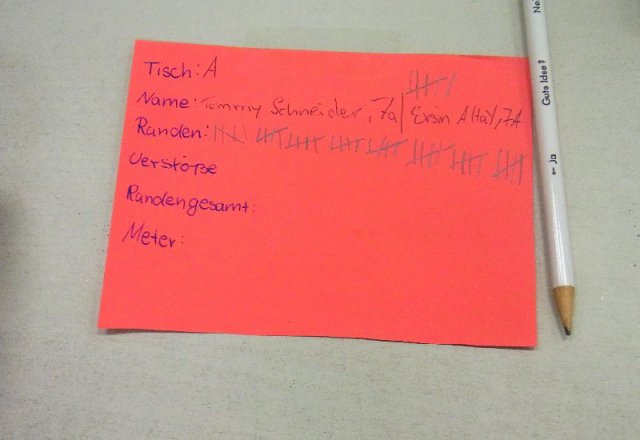 Tisch: A
Name: Tommy Schneider, 7a | Ersin Altay, 7A
Randen:
Verstöße
Randengesamt:
Meter:
Ne
Gute Idee!
← Ja